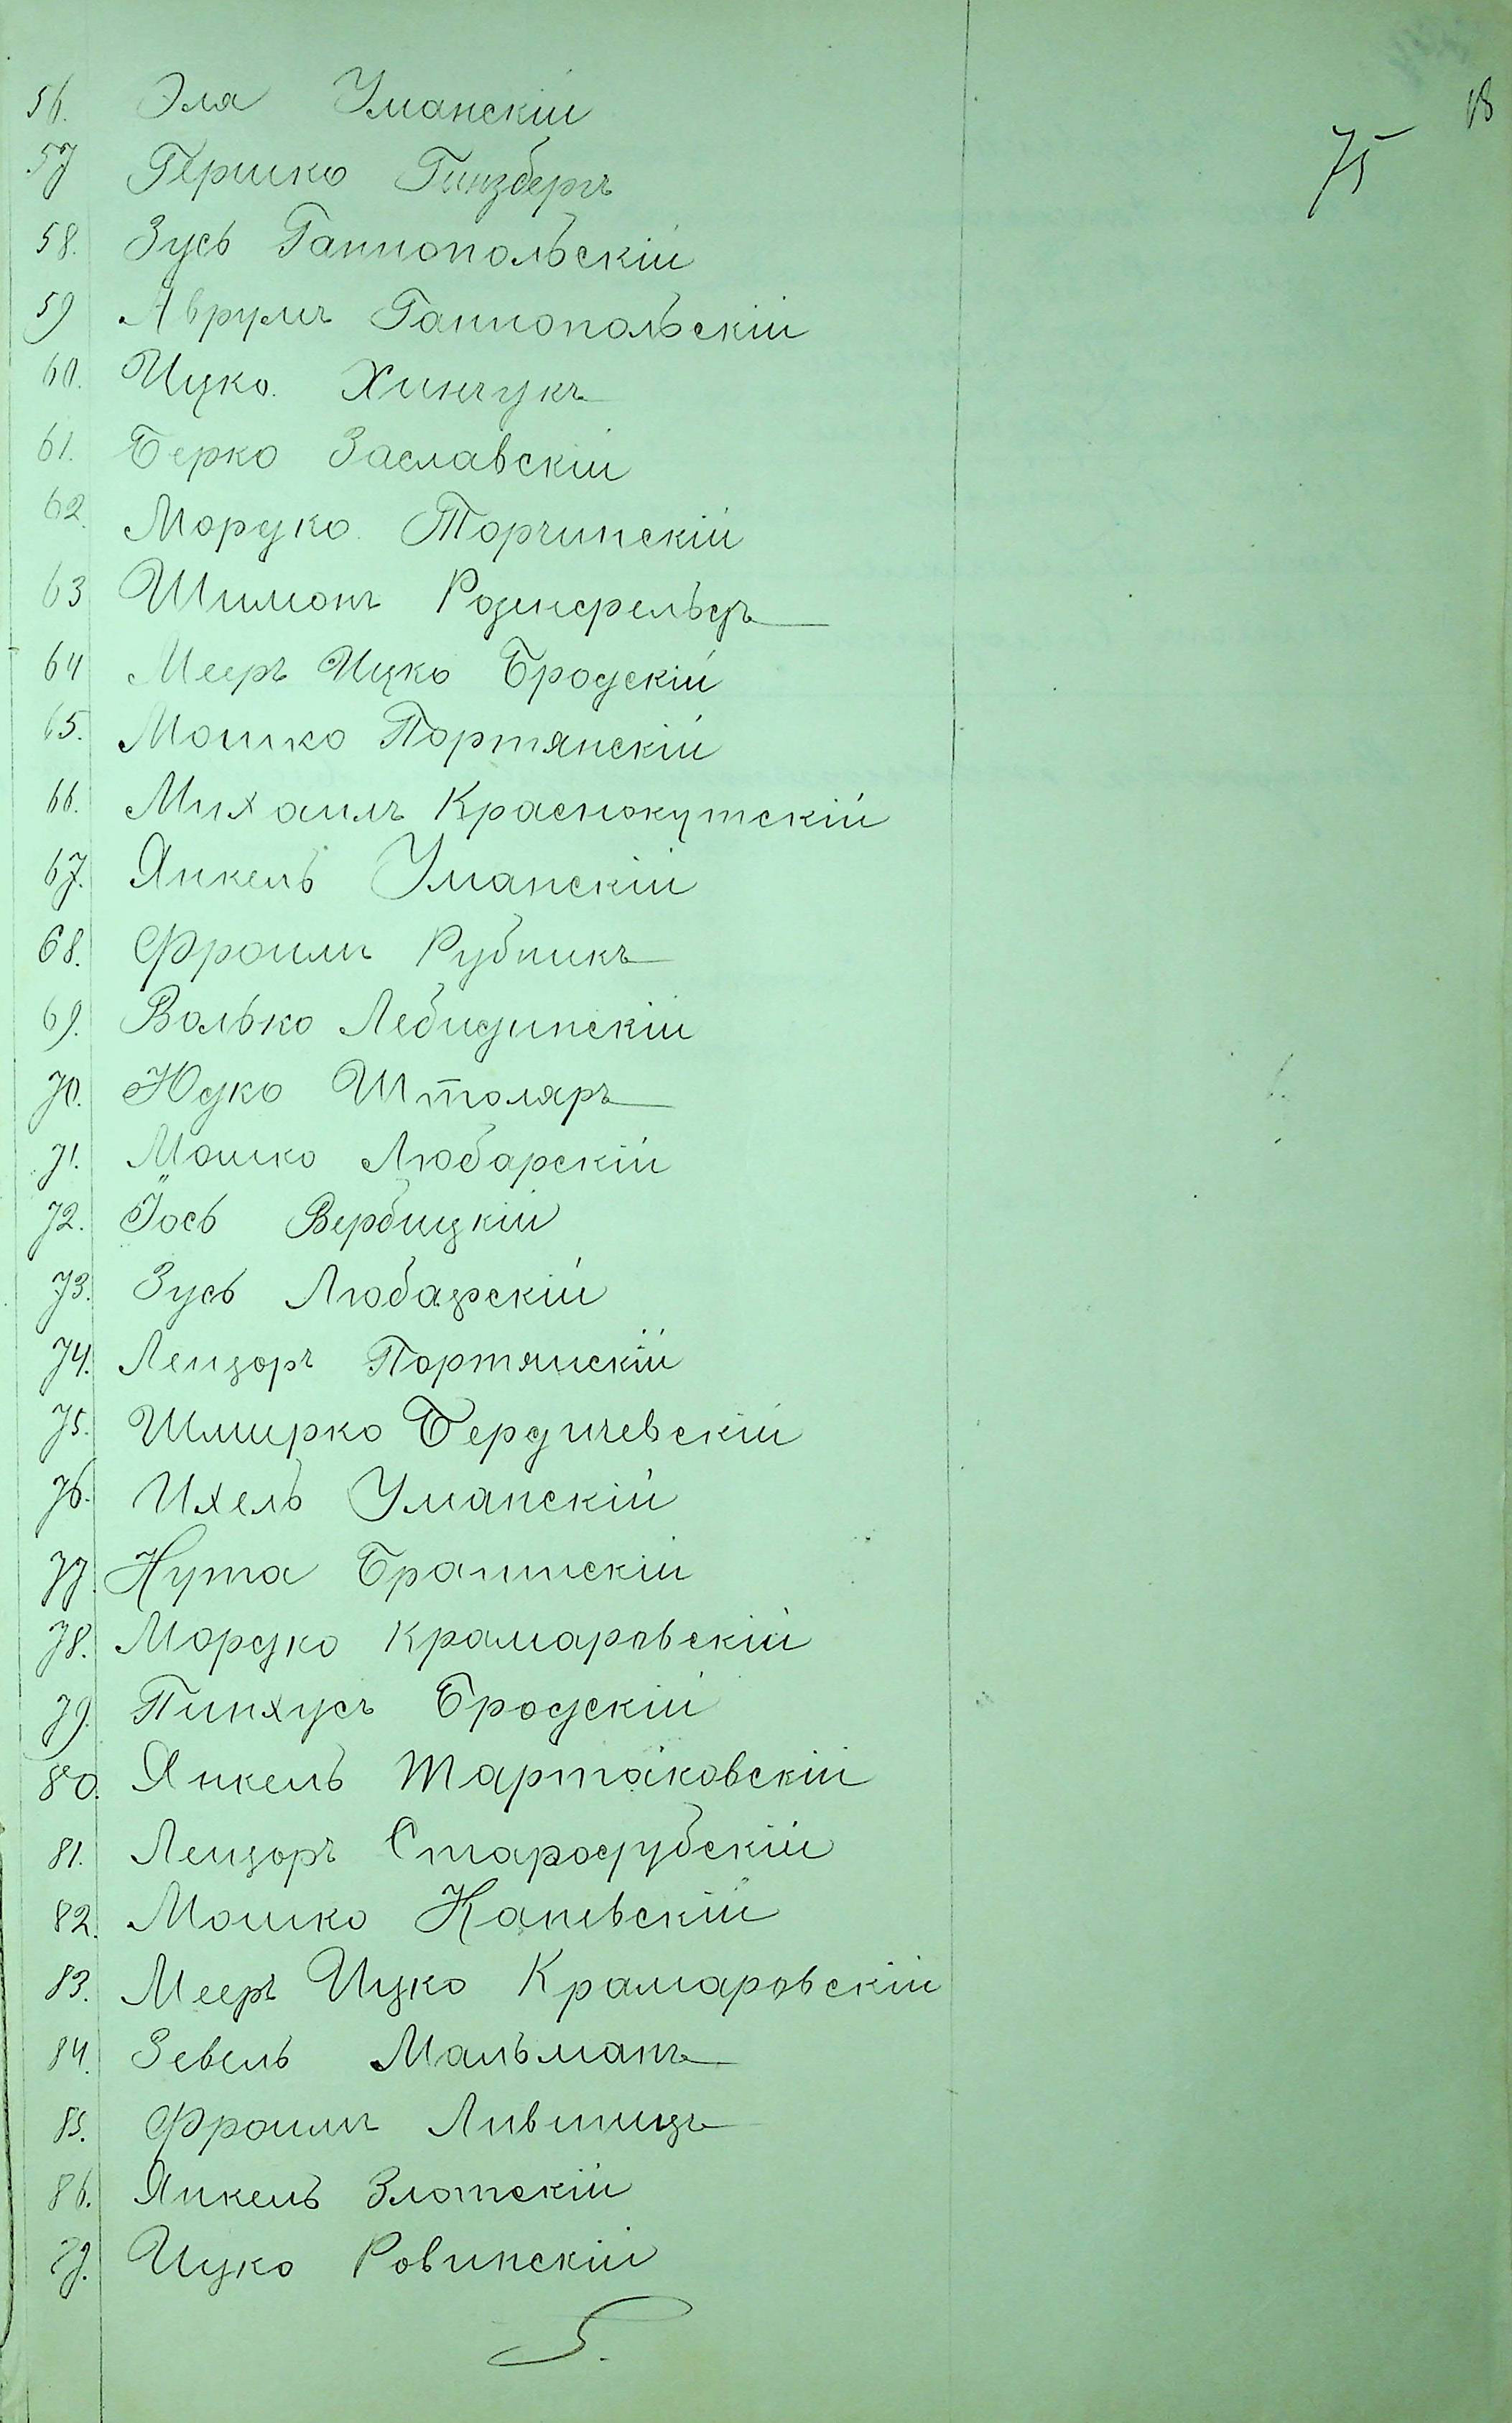 13
75
56. Эля Уманскій
57 Гершко Гинзбергъ
58. Зусь Ганнопольскій
59 Аврумъ Ганнопольскій
60. Ицко Хинчукъ
61. Берко Заславскій
62. Мордко Торчинскій
63 Шимонъ Розинфельдъ
64 Мееръ Ицко Бродскій
65. Мошко Портянскій
66. Михаилъ Краснокутскій
67. Янкель Уманскій
68. Фроимъ Рудникъ
69. Волько Лебидинскій
70. Юдко Штоляръ
71. Мошко Любарскій
72. Іось Вербицкій
73. Зусь Любарскій
74. Лейзоръ Портянскій
75. Шмирко Бердичевскій
76. Ихель Уманскій
77. Нута Браиинскій
78. Мордко Крамаровскій
79. Пинхусъ Бродскій
80. Янкель Тартаковскій
81. Лейзоръ Стародубскій
82. Мошко Каневскій
83. Мееръ Ицко Крамаровскій
84. Зевель Мальманъ
85. Фроимъ Лившицъ
86. Янкель Злотскій
87. Ицко Ровинскій